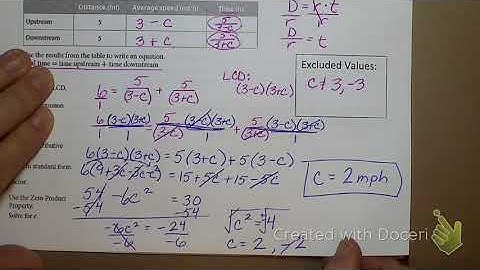 Distance (mi) Average speed (mi/h) Time (h)
Upstream 5 3 - c 5/(3-c)
Downstream 5 3 + c 5/(3+c)
D = r · t
D/r = t
use the results from the table to write an equation.
time = time upstream + time downstream
LCD:
(3-c)(3+c)
Excluded Values:
c ≠ 3, -3
6/1 = 5/(3-c) + 5/(3+c)
LCD.
6(3-c)(3+c)/1 = 5(3-c)(3+c)/(3-c) + 5(3-c)(3+c)/(3+c)
6(3-c)(3+c) = 5(3+c) + 5(3-c)
in standard form
6(9+3c-3c-c²) = 15+5c+15-5c
c = 2 mph
Use the Zero Product
Property.
54 - 6c² = 30
-54 -54
Solve for c.
-6c²/-6 = -24/-6
√c² = √4
c = 2, -2
Created with Doceri